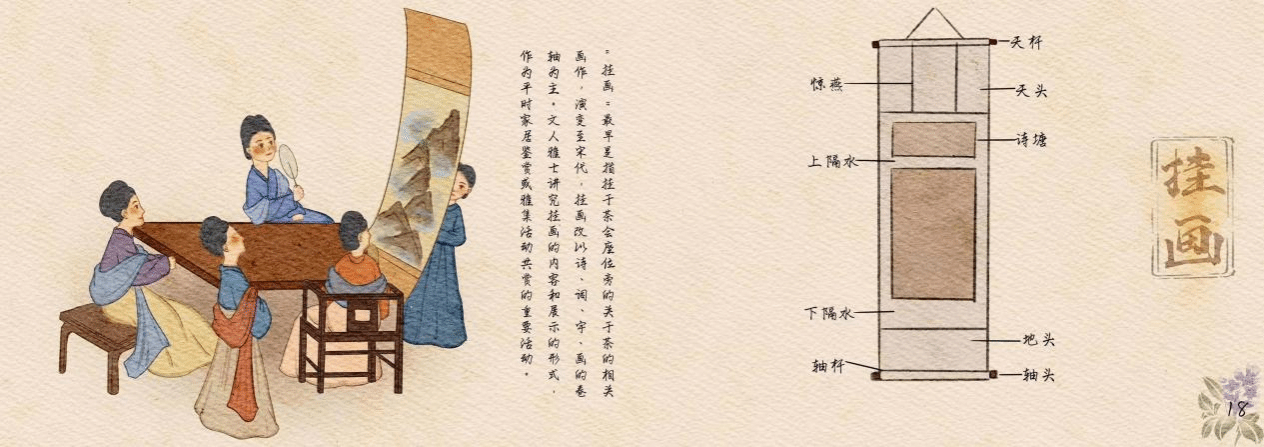 “挂画”最早是指挂于茶会座位旁的关于茶的相关
画作，演变至宋代，挂画改以诗、词、字、画的卷
轴为主。文人雅士讲究挂画的内容和展示的形式，
作为平时家居鉴赏或雅集活动共赏的重要活动。
天杆
惊燕
天头
诗塘
上隔水
下隔水
地头
轴杆
轴头
挂画
18